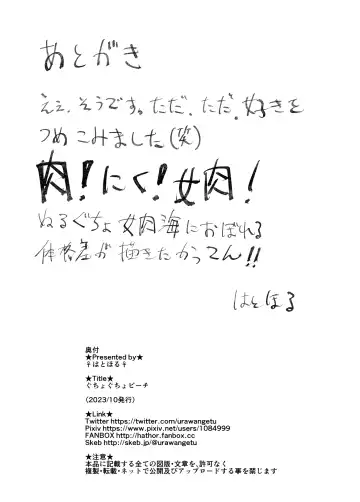 あとがき
ええ、そうです。ただ、ただ、好きを
つめこみました(笑)
肉!にく!女肉!
ぬるぐちょ女肉海におぼれる
体格差が描きたかってん!!
はとほる
奥付
★Presented by★
♀はとほる♀
★Title★
ぐちょぐちょビーチ
(2023/10発行)
★Link★
Twitter https://twitter.com/urawangetu
Pixiv https://www.pixiv.net/users/1084999
FANBOX http://hathor.fanbox.cc
Skeb http://skeb.jp/@urawangetu
★注意★
本品に記載する全ての図版・文章を、許可なく
複製・転載・ネットで公開及びアップロードする事を禁じます